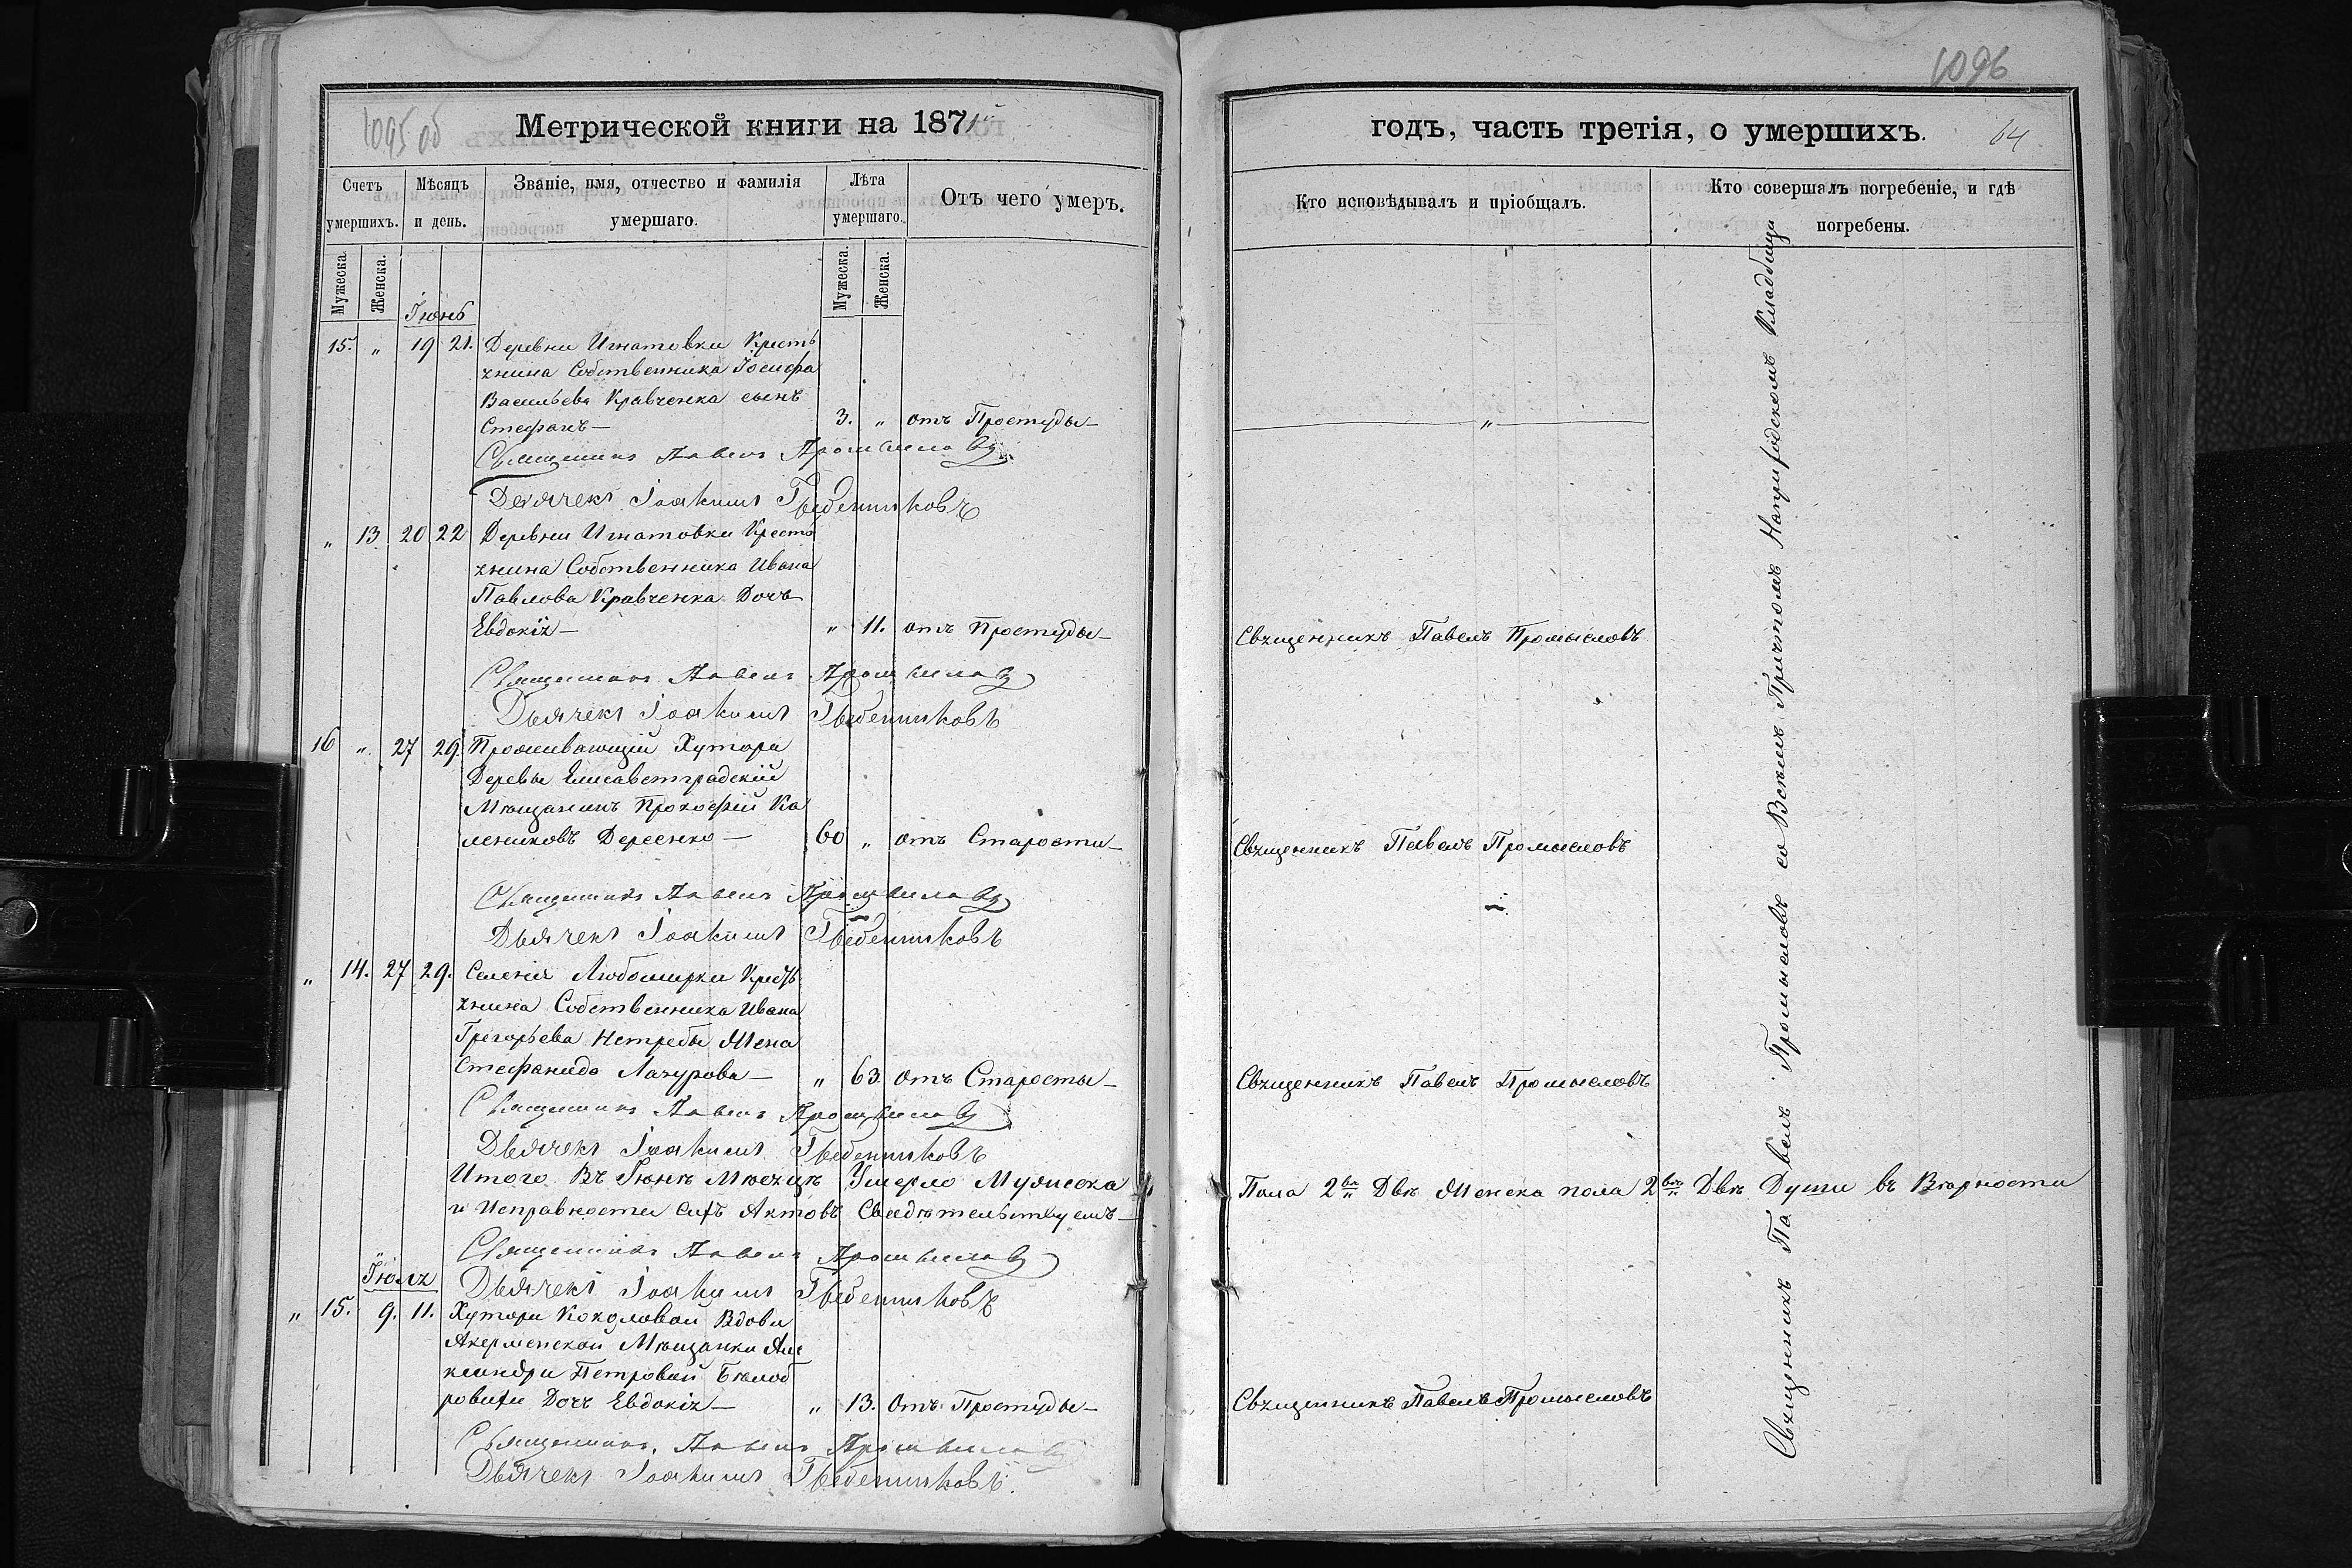 1095 об
Метрической книги на 1871й
Счетъ умершихъ.
Мѣсяцъ и день.
Званіе, имя, отчество и фамилія умершаго.
Лѣта умершаго.
Отъ чего умеръ.
Мужеска.
Женска.
Мужеска.
Женска.
Іюнь
15. „ 19 21. Деревни Игнатовки Кресть
янина Собственника Іосифа
Васильева Кравченка сынъ
Стефанъ— 3. „ отъ Простуды—
Священникъ Павелъ Промысловъ
Дьячекъ Іоакимъ
„ 13 20 22 Деревни Игнатовки Кресть
янина Собственника Ивана
Павлова Кравченка Дочь
Евдокія— „ 11. отъ Простуды—
Священникъ Павелъ Промысловъ
Дьячекъ Іоакимъ
16 „ 27 29. Проживающій Хутора
Деревы Елисаветградскій
Мѣщанинъ Прокофій Ка
лениковъ Дереенко— 60 „ отъ Старости—
Священникъ Павелъ Промысловъ
Дьячекъ Іоакимъ
„ 14. 27 29. Селенія Любомирки Кресть
янина Собственника Ивана
Григорьева Нетребы Жена
Стефанида Лазурова— „ 63. отъ Старосты—
Священникъ Павелъ Промысловъ
Дьячекъ Іоакимъ
Итого Въ Іюнѣ Мѣсяцѣ Умерло Мужеска
и Исправности сихъ Актовъ Свидѣтельствуемъ—
Священникъ Павелъ Промысловъ
Іюля
Дьячекъ Іоакимъ
„ 15. 9. 11. Хутора Коколовой Вдовы
Акерменской Мѣщанки Але
ксандры Петровой Бѣлоб
ровихи Дочь Евдокія— „ 13. Отъ Простуды—
Священникъ Павелъ Промысловъ
Дьячекъ Іоакимъ
1096
годъ, часть третія, о умершихъ.
64
Кто исповѣдывалъ и пріобщалъ.
Кто совершалъ погребеніе, и гдѣ погребены.
„
Священникъ Павелъ Промысловъ
Священникъ Павелъ Промысловъ
Священникъ Павелъ Промысловъ
Пола 2ва Двѣ Женска пола 2вѣ Двѣ Души въ Вѣрности
Священникъ Павелъ Промысловъ
Священникъ Павелъ Промысловъ со Всѣмъ Причтомъ На Кладбищи